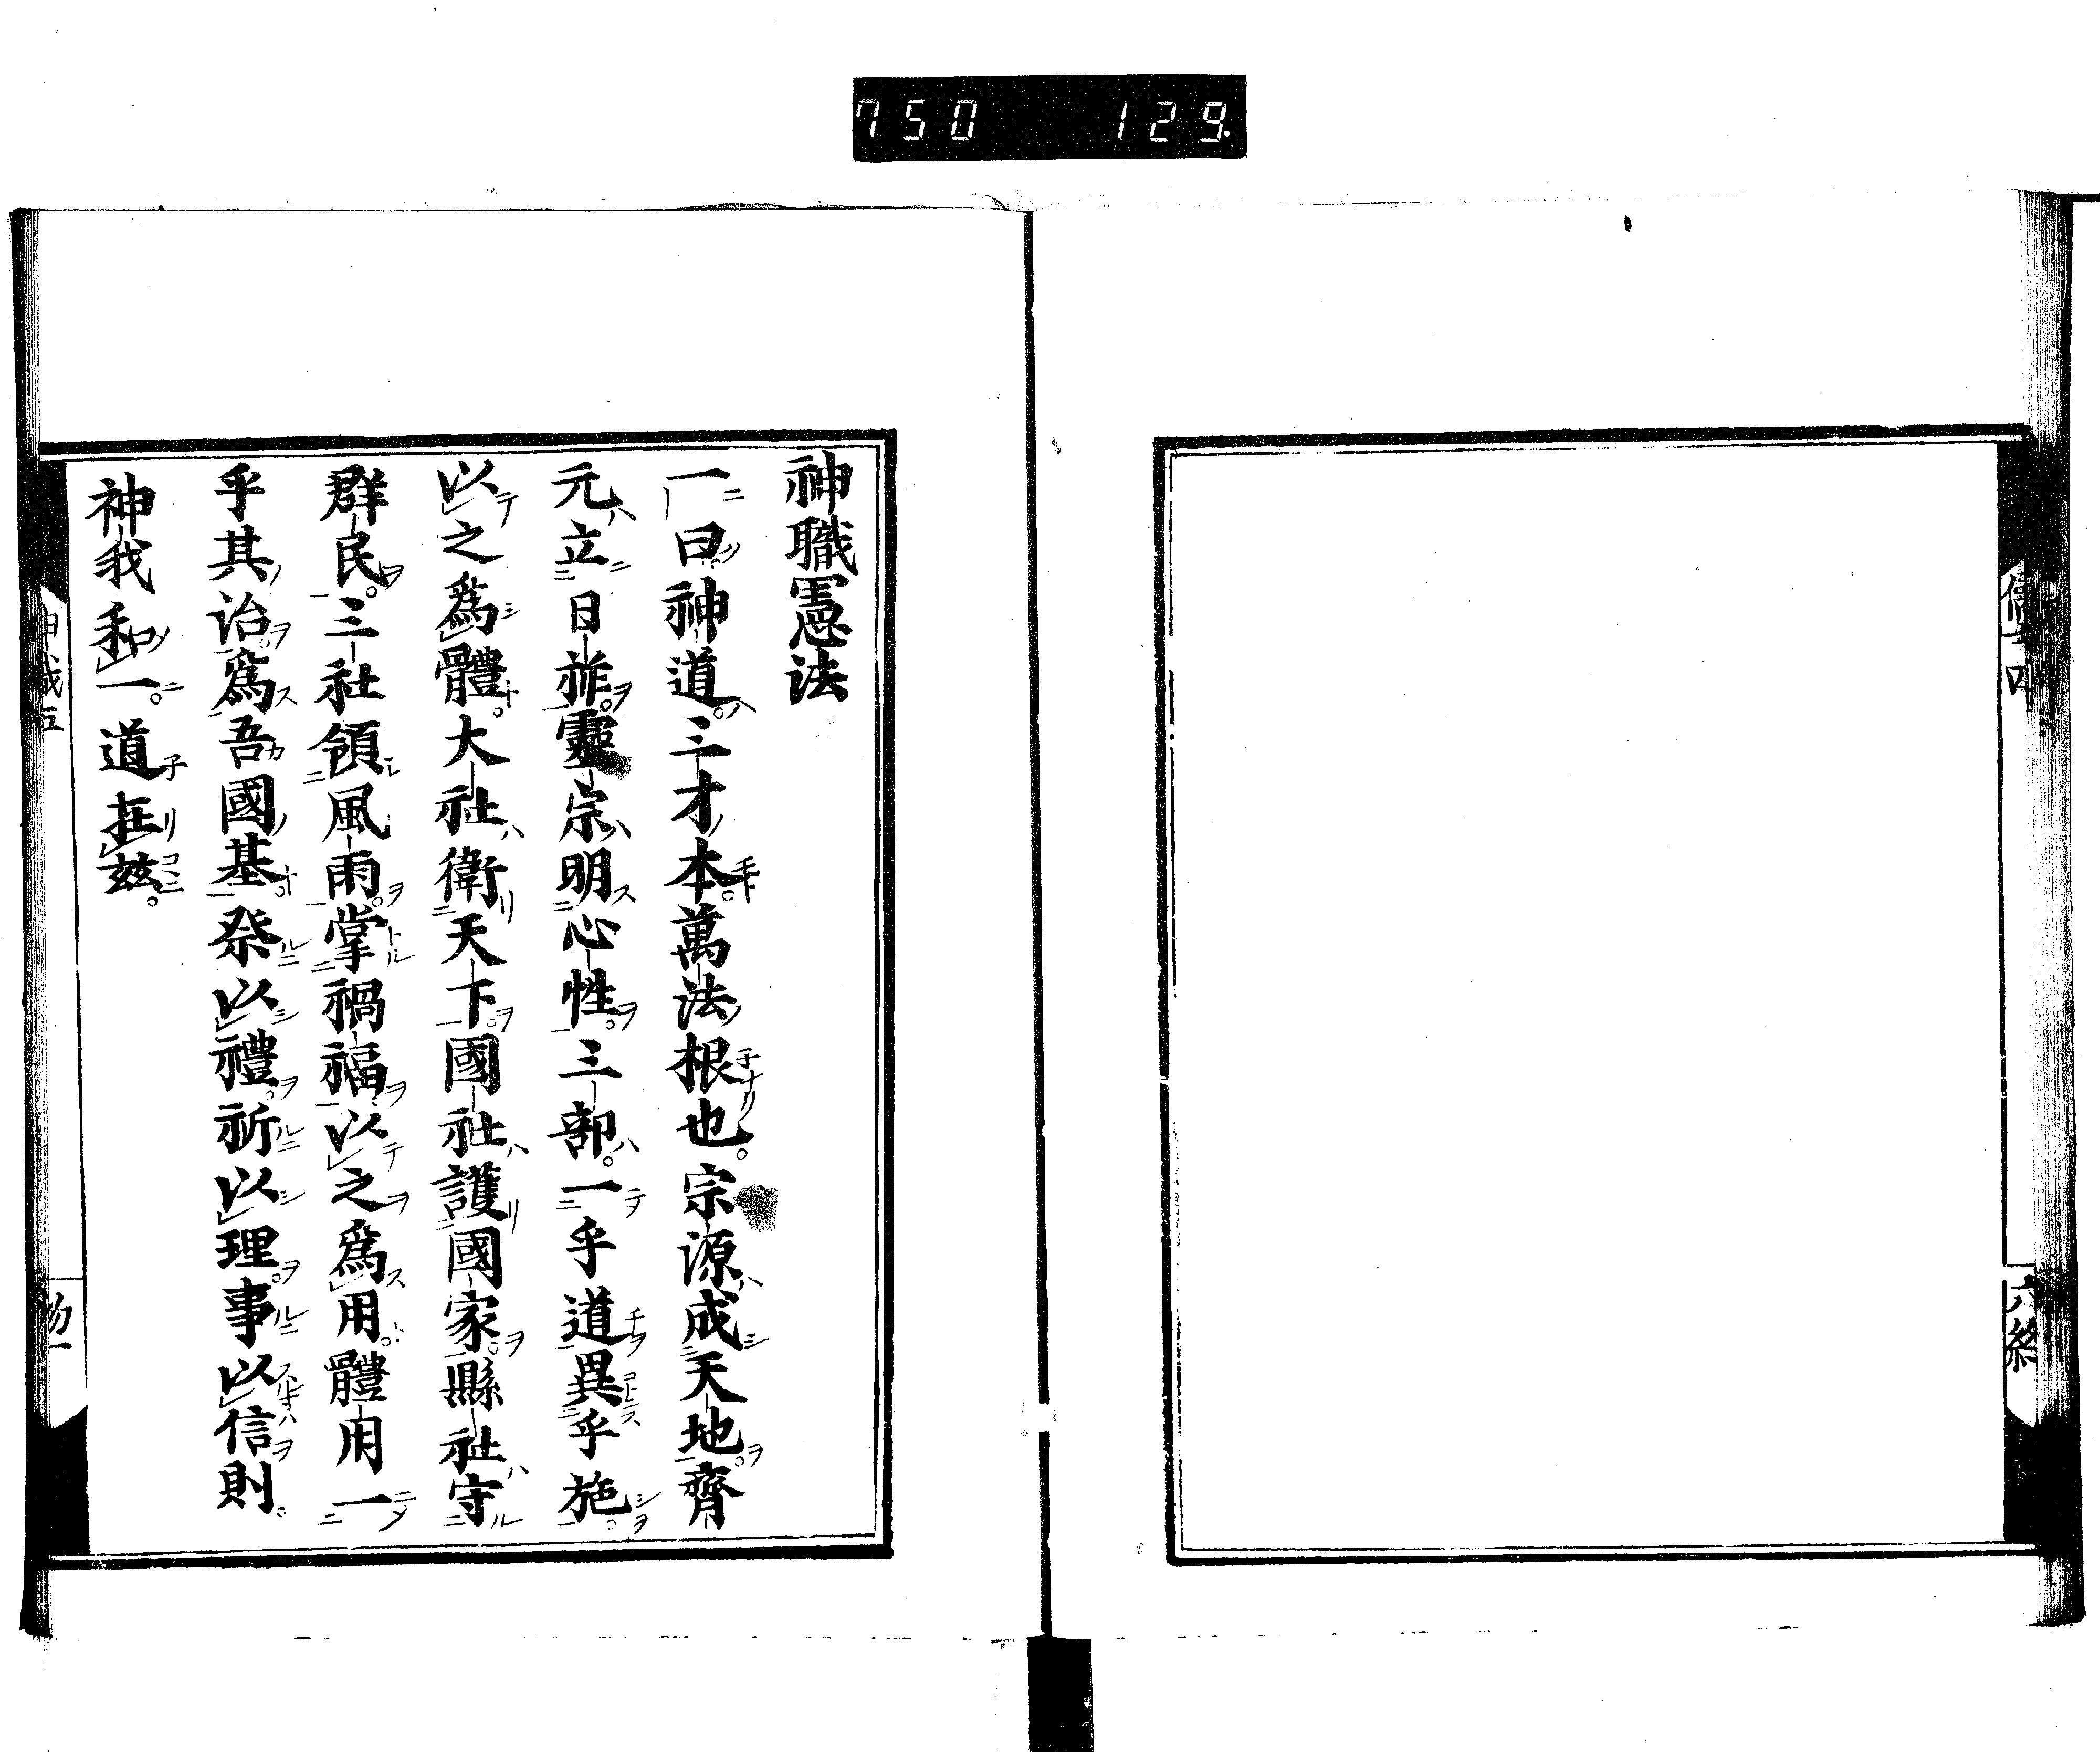 750 129.
六終
神職憲法
一曰神道三才本萬法根也宗源成天地齊
元立日祚靈宗明心性三部一乎道異乎施
以之爲體大社衛天下國社護國家縣社守
群民三社領風雨掌禍福以之爲用體用一
乎其治爲吾國基祭以禮祈以理事以信則
神我和一道在茲